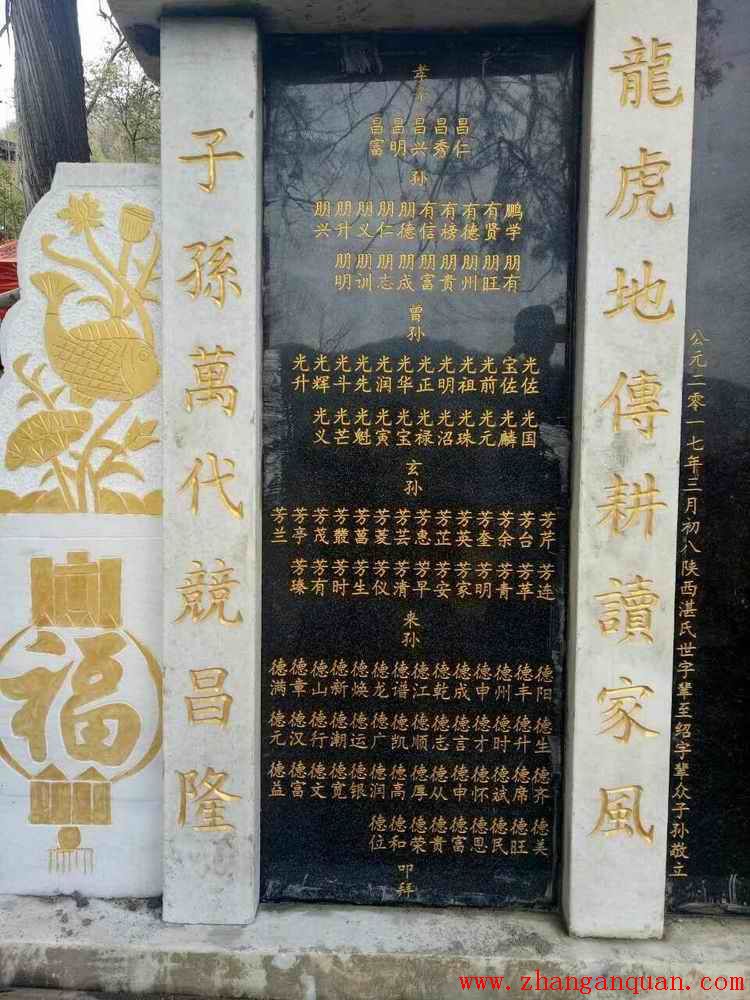 龍虎地傳耕讀家風
孝子
昌仁 昌秀 昌兴 昌明 昌富
孙
鹏学 有贤 有德 有榜 有信 朋德 朋仁 朋义 朋升 朋兴
朋有 朋旺 朋州 朋贵 朋富 朋成 朋志 朋训 朋明
曾孙
光佐 宝佐 光前 光祖 光明 光正 光华 光润 光先 光斗 光辉 光升
光国 光麟 光元 光珠 光沼 光禄 光宝 光寅 光魁 光芒 光义
玄孙
芳芹 芳台 芳余 芳奎 芳英 芳芷 芳惠 芳芸 芳菱 芳菖 芳茂 芳亭 芳兰
芳连 芳苹 芳青 芳明 芳家 芳安 芳早 芳清 芳仪 芳生 芳时 芳有 芳臻
来孙
德阳 德丰 德州 德申 德成 德乾 德江 德谱 德龙 德焕 德新 德山 德章 德满
德生 德升 德时 德才 德言 德志 德顺 德凯 德广 德运 德潮 德行 德汉 德元
德齐 德席 德斌 德怀 德申 德从 德厚 德高 德润 德银 德宽 德文 德富 德益
德美 德旺 德民 德恩 德富 德贵 德荣 德和 德位
叩拜
子孫萬代競昌隆
福
公元二零一七年三月初八陕西湛氏世字辈至绍字辈众子孙敬立
www.zhanganquan.com